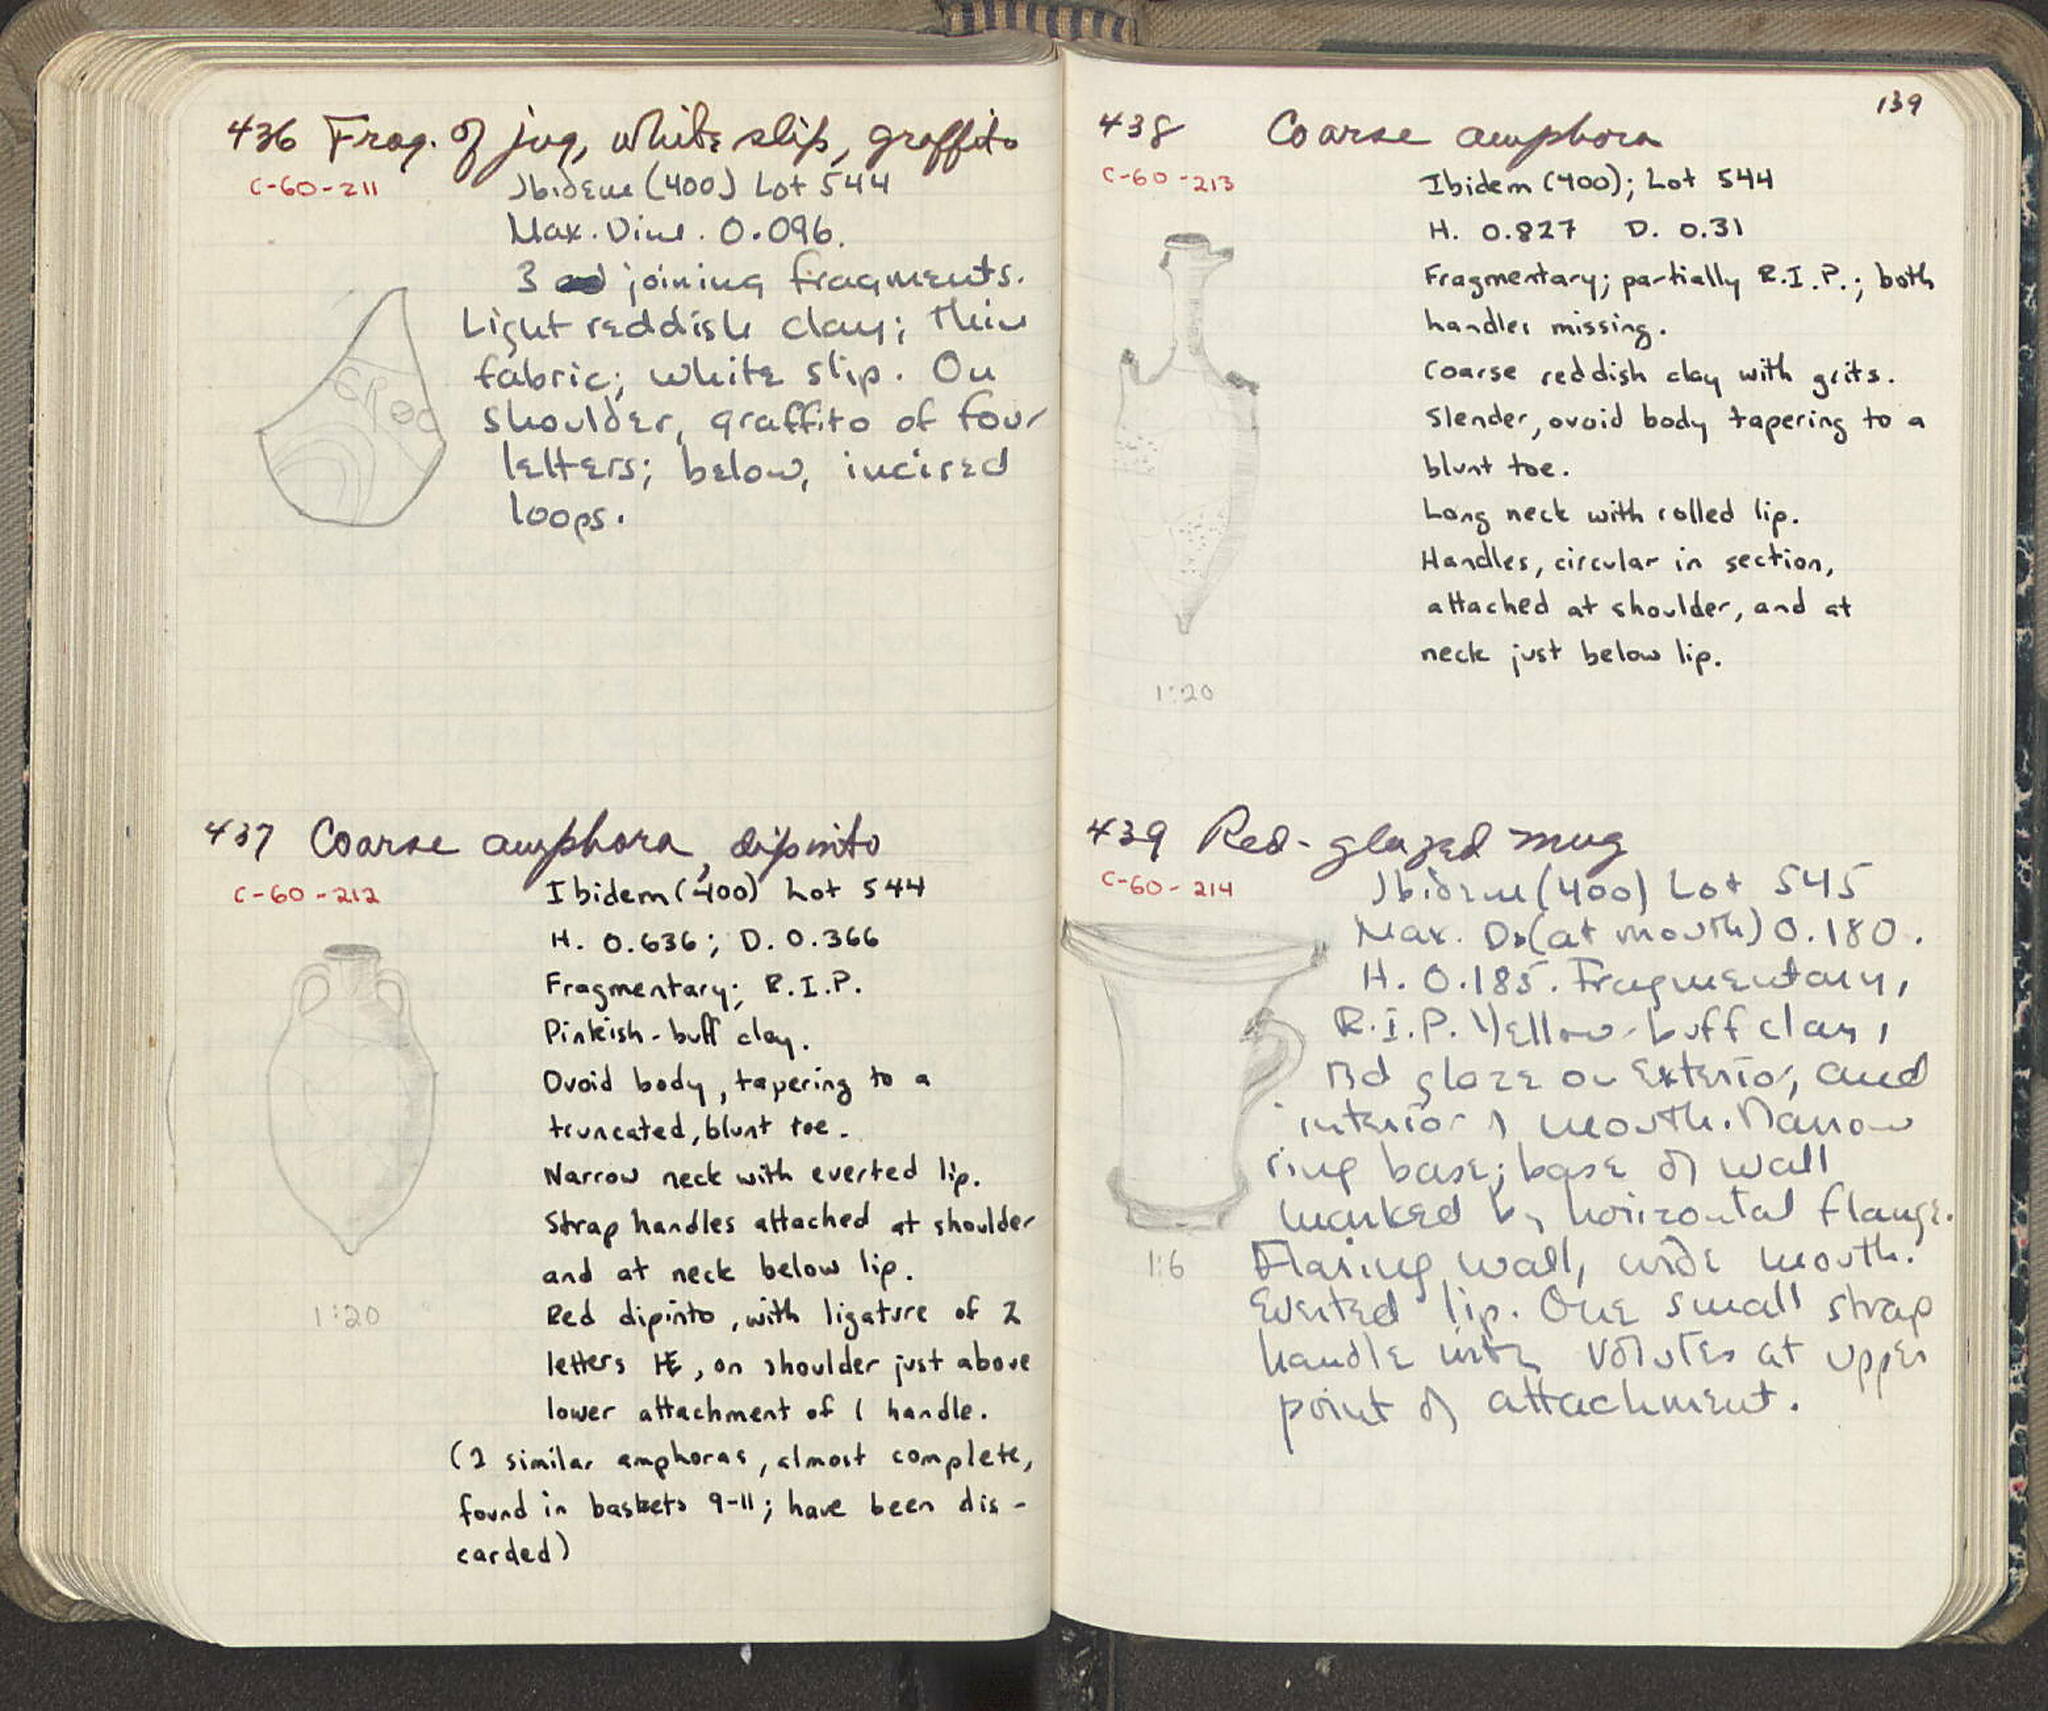 436 Frag. of jug, white slip, graffito
C-60-211
Ibidem (400) Lot 544
Max. Dim. 0.096.
3 joining fragments.
Light reddish clay; thin
fabric; white slip. On
shoulder, graffito of four
letters; below, incised
loops.
437 Coarse amphora, dipinto
C-60-212
Ibidem (400) Lot 544
H. 0.636; D. 0.366
Fragmentary; R.I.P.
Pinkish-buff clay.
Ovoid body, tapering to a
truncated, blunt toe.
Narrow neck with everted lip.
Strap handles attached at shoulder
and at neck below lip.
1:20
Red dipinto, with ligature of 2
letters HE, on shoulder just above
lower attachment of 1 handle.
(2 similar amphoras, almost complete,
found in baskets 9-11; have been dis-
carded)
139
438 Coarse amphora
C-60-213
Ibidem (400); Lot 544
H. 0.827 D. 0.31
Fragmentary; partially R.I.P.; both
handles missing.
Coarse reddish clay with grits.
Slender, ovoid body tapering to a
blunt toe.
Long neck with rolled lip.
Handles, circular in section,
attached at shoulder, and at
neck just below lip.
1:20
439 Red-glazed mug
C-60-214
Ibidem (400) Lot 545
Max. D. (at mouth) 0.180.
H. 0.185. Fragmentary,
R.I.P. Yellow-buff clay,
red glaze on exterior, and
interior of mouth. Narrow
ring base; base of wall
marked by horizontal flange.
1:6
Flaring wall, wide mouth.
Everted lip. One small strap
handle with volutes at upper
point of attachment.